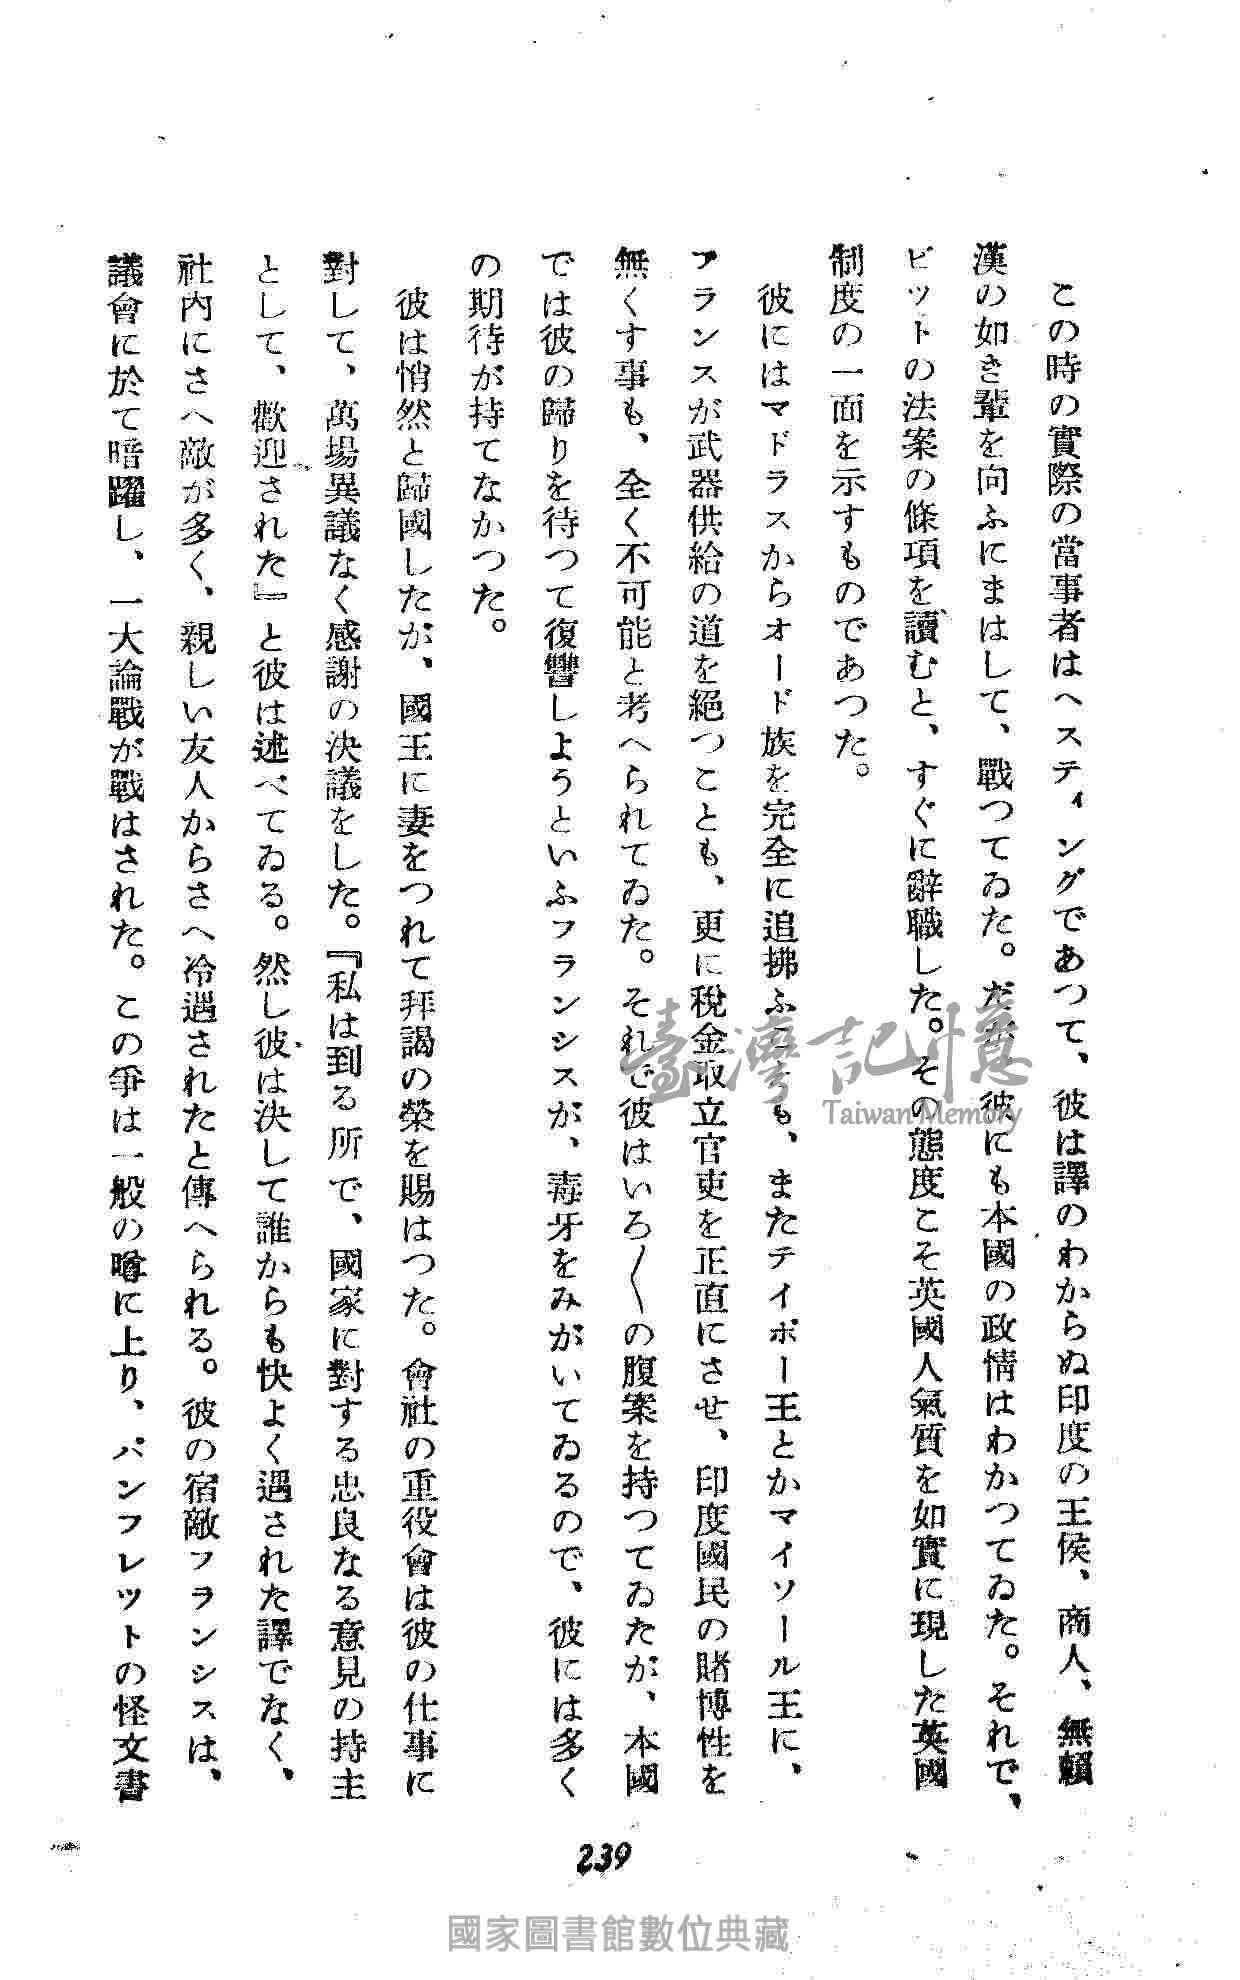 この時の實際の當事者はヘスティングであつて、彼は譯のわからぬ印度の王侯、商人、無賴
漢の如き輩を向ふにまはして、戰つてゐた。だが、彼にも本國の政情はわかつてゐた。それで、
ピットの法案の條項を讀むと、すぐに辭職した。その態度こそ英國人氣質を如實に現した英國
制度の一面を示すものであつた。
彼にはマドラスからオード族を完全に追拂ふことも、またテイポー王とかマイソール王に、
フランスが武器供給の道を絕つことも、更に稅金取立官吏を正直にさせ、印度國民の賭博性を
無くす事も、全く不可能と考へられてゐた。それで彼はいろ〳〵の腹案を持つてゐたが、本國
では彼の歸りを待つて復讐しようといふフランシスが、毒牙をみがいてゐるので、彼には多く
の期待が持てなかつた。
彼は悄然と歸國したが、國王に妻をつれて拜謁の榮を賜はつた。會社の重役會は彼の仕事に
對して、萬場異議なく感謝の決議をした。『私は到る所で、國家に對する忠良なる意見の持主
として、歡迎された』と彼は述べてゐる。然し彼は決して誰からも快よく遇された譯でなく、
社內にさへ敵が多く、親しい友人からさへ冷遇されたと傳へられる。彼の宿敵フランシスは、
議會に於て暗躍し、一大論戰が戰はされた。この爭は一般の噂に上り、パンフレットの怪文書
239
臺灣記憶
Taiwan Memory
國家圖書館數位典藏